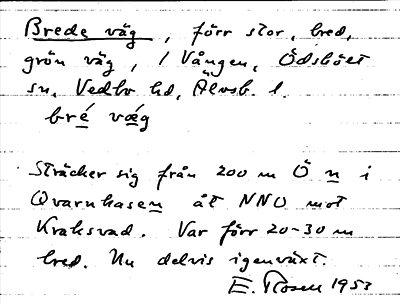 Brede väg, förr stor, bred,
grön väg, i Vången, Ödsböet
sn, Vedbo hd, Älvsb. l.
bré væ̨g
Strächer sig från 200 m Ö n i
Qvarnhasen åt NNO mot
Kraksvad. Var förr 20-30 m
bred. Nu delvis igenväxt.
E. Rosen 1953